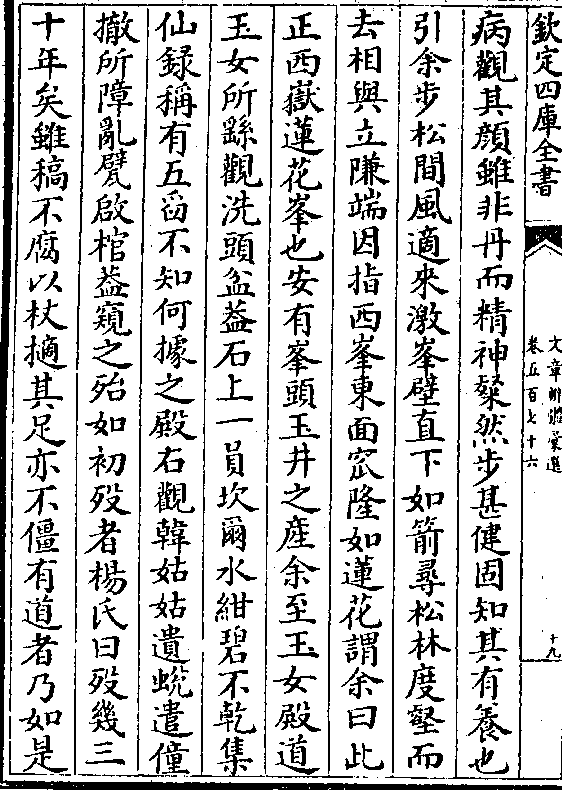 欽定四庫全書
文章辨體彙選
卷五百七十六
十九
病觀其顔雖非丹而精神粲然步甚健固知其有養也
引余步松間風適來激峯壁直下如箭尋松林度壑而
去相與立隒端因指西峯東面窊隆如蓮花謂余曰此
正西嶽蓮花峯也安有峯頭玉井之産余至玉女殿道
玉女所繇觀洗頭盆葢石上一員坎爾水紺碧不乾集
仙録稱有五臼不知何據之殿右觀韓姑姑遺蛻遣僮
撤所障亂甓啟棺葢窺之殆如初歿者楊氏曰歿幾三
十年矣雖稿不腐以杖擿其足亦不僵有道者乃如是